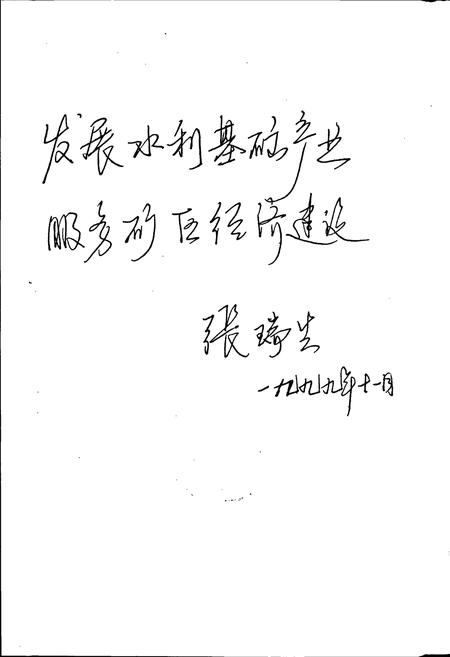 发展水利基础产业
服务矿区经济建设
張瑞生
一九九九年十一月